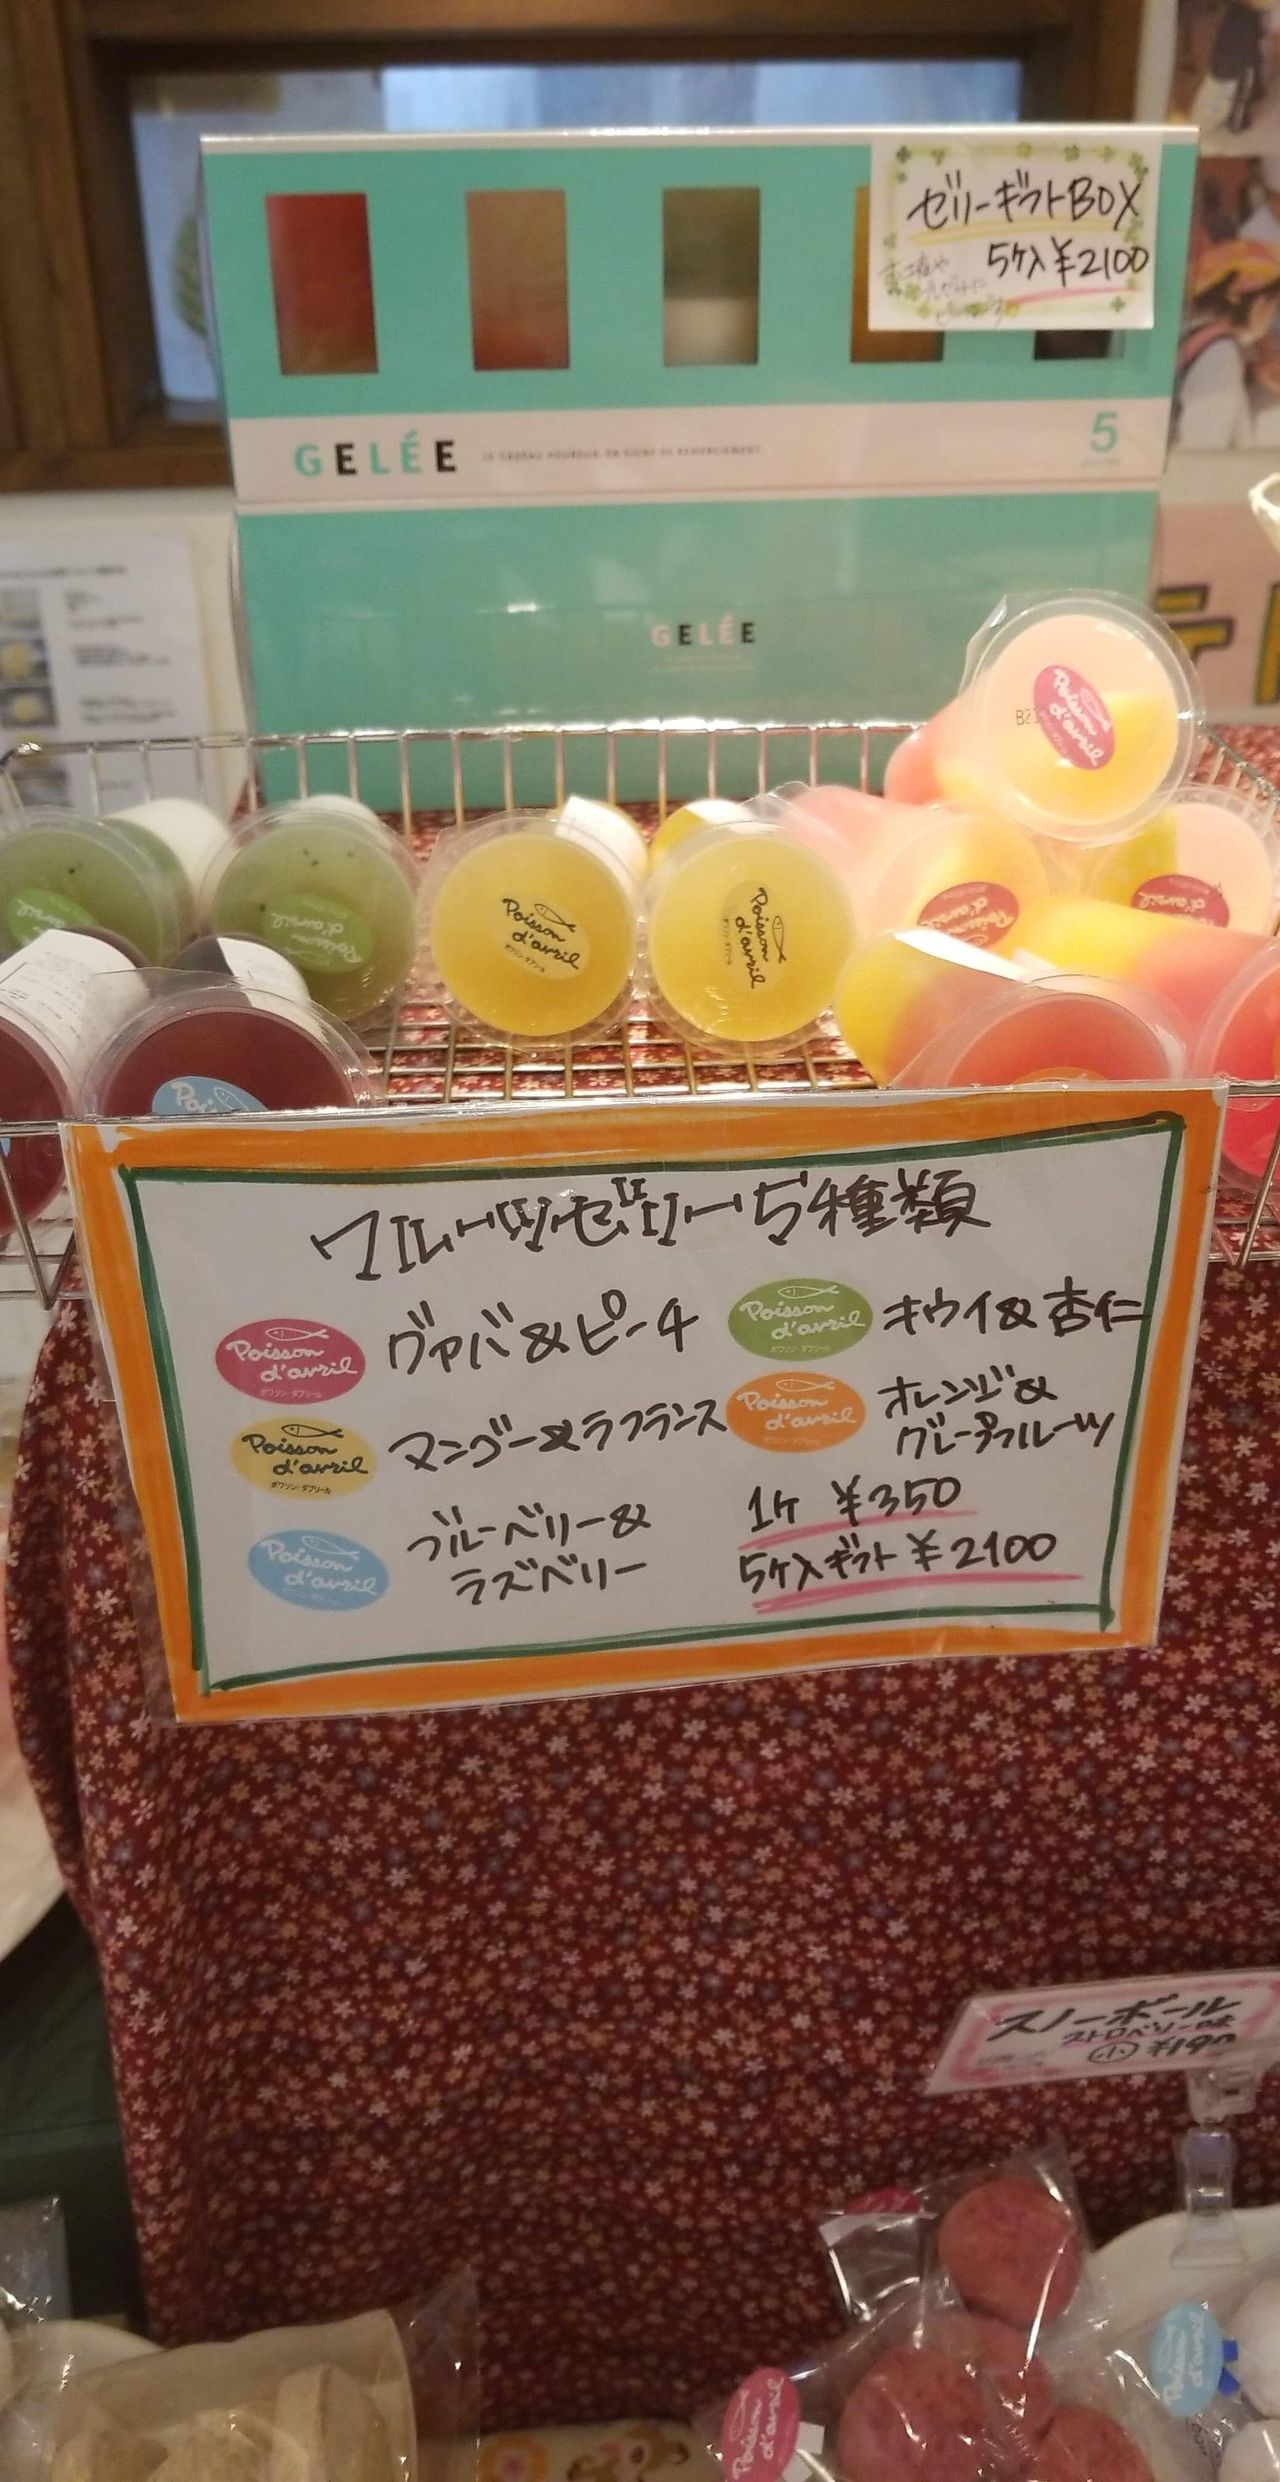 ゼリーギフトBOX
5ケ入 ¥2100
GELÉE
5
GELÉE
Poisson d'avril
Poisson d'avril
ポワソン・ダブリール
Poisson d'avril
フルーツゼリー5種類
Poisson d'avril
ポワソン・ダブリール
グァバ&ピーチ
Poisson d'avril
ポワソン・ダブリール
キウイ&杏仁
Poisson d'avril
ポワソン・ダブリール
マンゴー&ラフランス
Poisson d'avril
ポワソン・ダブリール
オレンジ&
グレープフルーツ
Poisson d'avril
ブルーベリー&
ラズベリー
1ケ ¥350
5ケ入ギフト ¥2100
スノーボール
ストロベリー味
小 ¥190
Poisson d'avril
Poisson